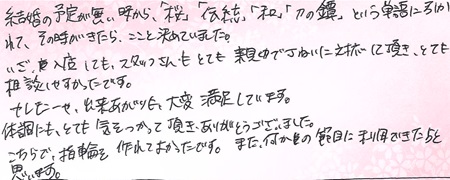 結婚の予定が無い時から、「桜」「伝統」「和」「刀の鐔」という単語にひかれて、その時がきたら、ここと決めていました。
いざ、来店しても、スタッフさんもとても親切でていねいに対応して頂き、とても
相談しやすかったです。
そして一、出来あがりも、大変満足しています。
体調にも、とても気をつかって頂きありがとうございました。
こちらで、指輪を作れてよかったです。また、何かの節目に利用できたらと
思います。